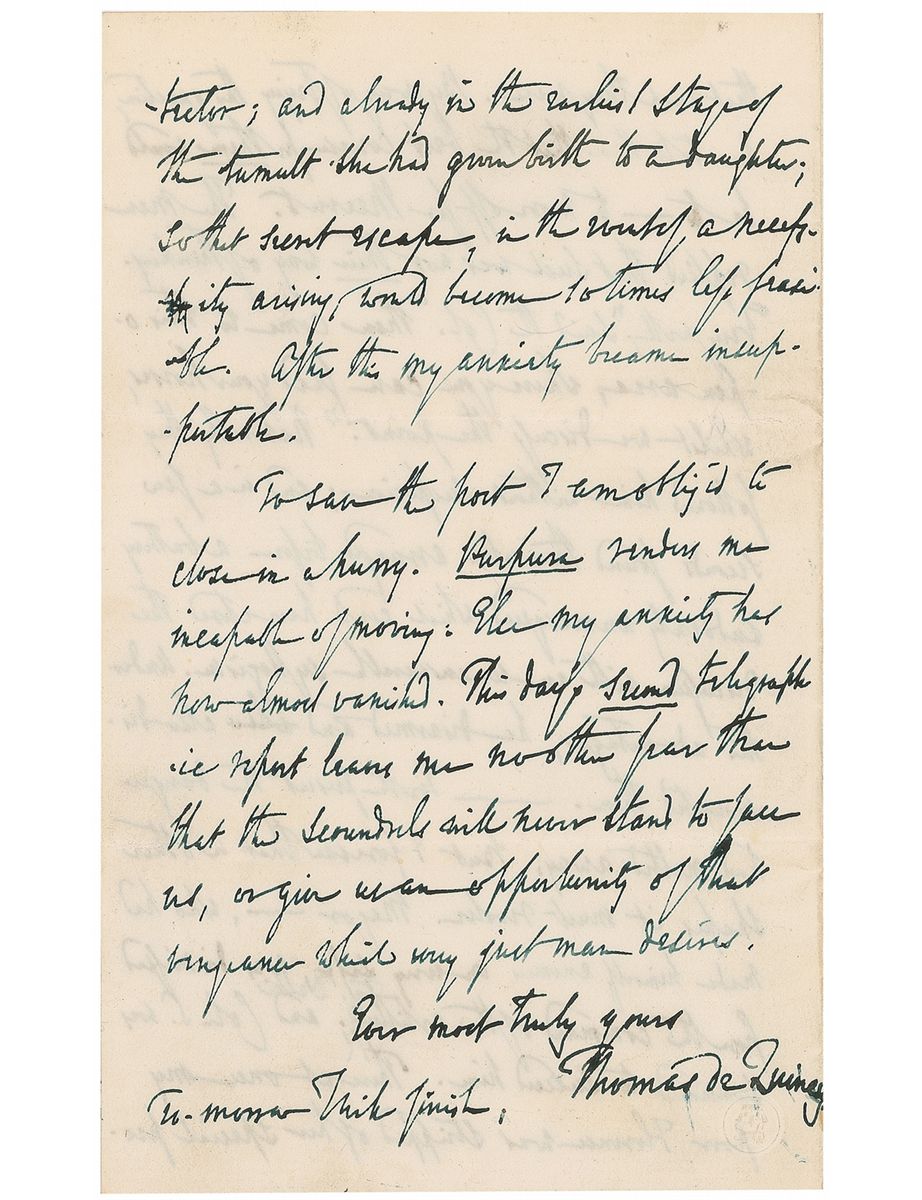 -tector; and already in the earliest stage of
the tumult she had given birth to a daughter;
so that secret escape, in the event of a necess-
ity arising, would become 10 times less feasi-
-ble. After this my anxiety became insup-
-portable.
To save the post I am oblig'd to
close in a hurry. Purpura renders me
incapable of moving. Else my anxiety has
now almost vanished. This day's second telegraph-
-ic report leaves me no other fear than
that the scoundrels will never stand to face
us, or give us an opportunity of that
vengeance which every just man desires.
Ever most truly yours
Thomas de Quincey
To-morrow I will finish.